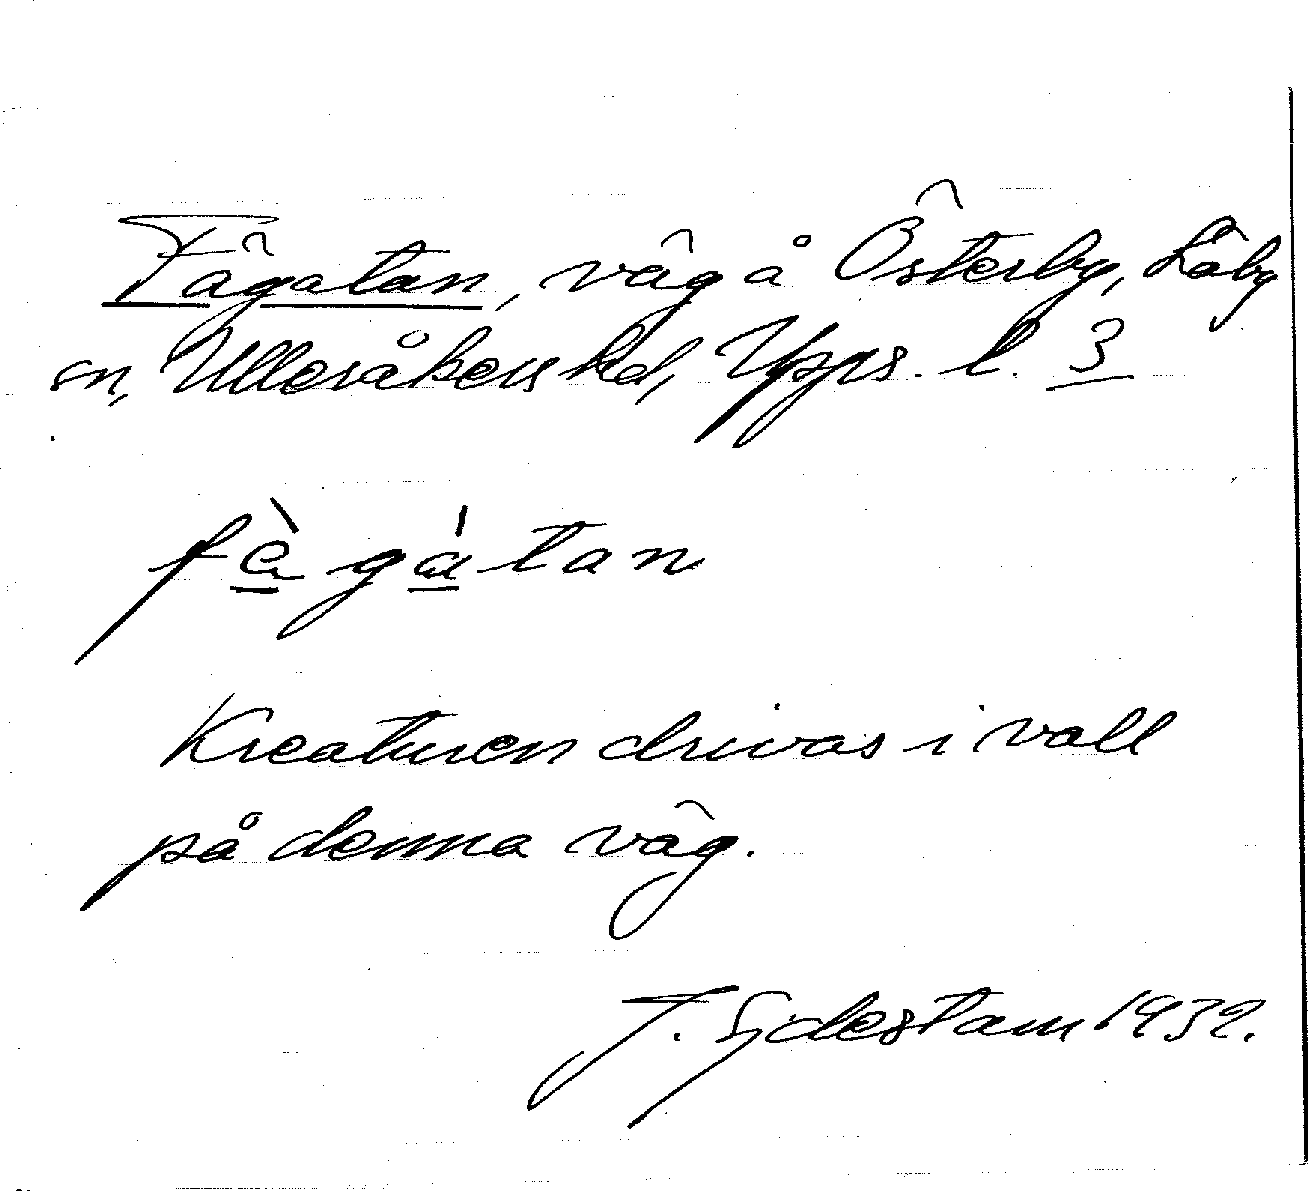 Fägatan, väg å Österby, Läby
sn, Ulleråkers hd, Upps. l. 3
fä̀gátan
Kreaturen drivas i vall
på denna väg.
J. Sjdestam 1932.